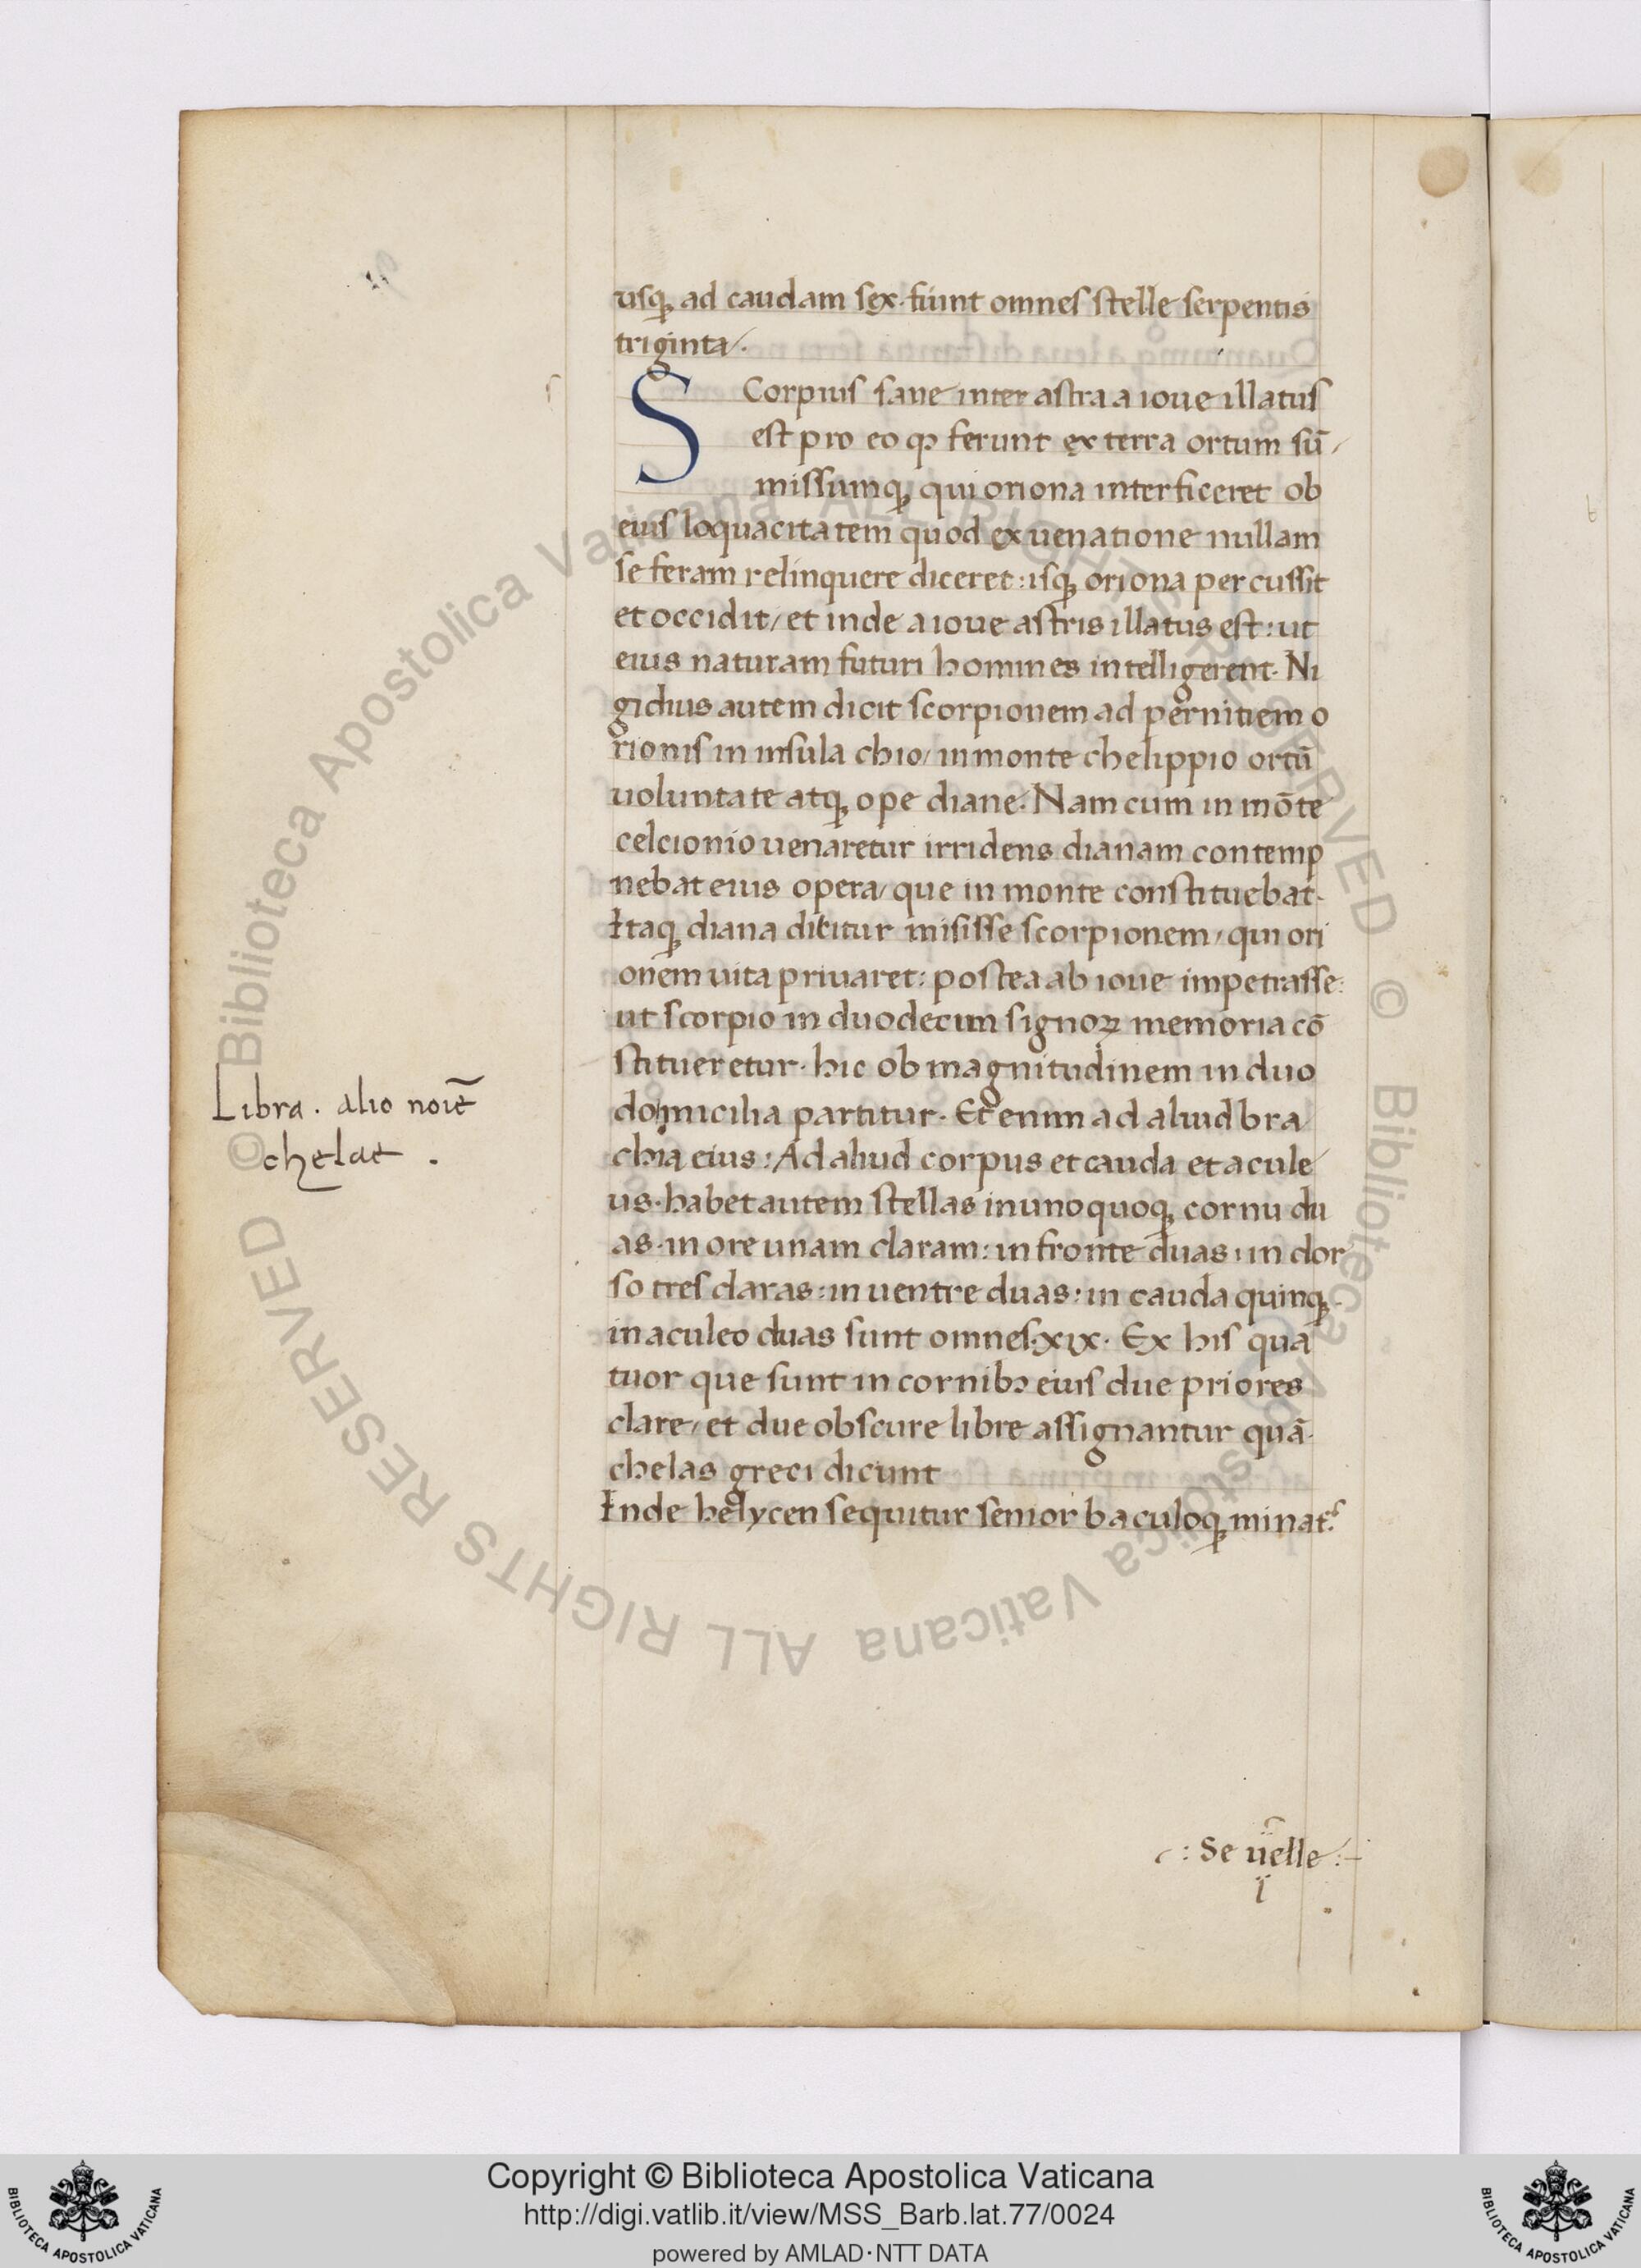 usq; ad caudam sex. fiunt omnes stelle serpentis
triginta.
SCorpius sane inter astra a ioue illatus
est pro eo qɔ ferunt ex terra ortum sũ
missumq; qui oriona interficeret ob
eius loquacitatem quod ex uenatione nullam
se feram relinquere diceret: isq; oriona percussit
et occidit/ et inde a ioue astris illatus est: ut
eius naturam futuri homines intelligerent. Ni
gidius autem dicit scorpionem ad pernitiem o
rionis in insula chio/ in monte chelippio ortũ
uoluntate atq; ope diane. Nam cum in mõte
celcionio uenaretur irridens dianam contemp
nebat eius opera/ que in monte constituebat.
Itaq; diana dicitur misisse scorpionem/ qui ori
onem uita priuaret: postea ab ioue impetrasse:
ut scorpio in duodecim signoꝝ memoria cõ
stitueretur. hic ob magnitudinem in duo
domicilia partitur. Etenim ad aliud bra
chia eius: Ad aliud corpus et cauda et acule
us. habet autem stellas in unoquoq; cornu du
as. in ore unam claram: in fronte duas: in dor
so tres claras: in uentre duas: in cauda quinq;
in aculeo duas sunt omnes.xix. Ex his qua
tuor que sunt in cornibɔ eius due priores
clare/ et due obscure libre assignantur quã
chelas greci dicunt
Inde helycen sequitur senior baculoq; minat᷑
Libra. alio noiẽ
chelae.
: Se uelle :
Copyright © Biblioteca Apostolica Vaticana
http://digi.vatlib.it/view/MSS_Barb.lat.77/0024
powered by AMLAD·NTT DATA
BIBLIOTECA APOSTOLICA VATICANA
BIBLIOTECA APOSTOLICA VATICANA
© Biblioteca Apostolica Vaticana ALL RIGHTS RESERVED © Biblioteca Apostolica Vaticana ALL RIGHTS RESERVED